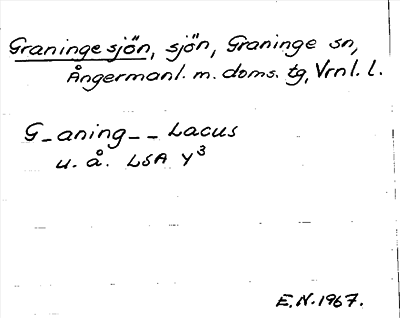 Graningesjön, sjön, Graninge sn,
Ångermanl. m. doms. tg, Vrnl. l.
G_aning__ Lacus
u. å. LSA Y³
E.N.1967.